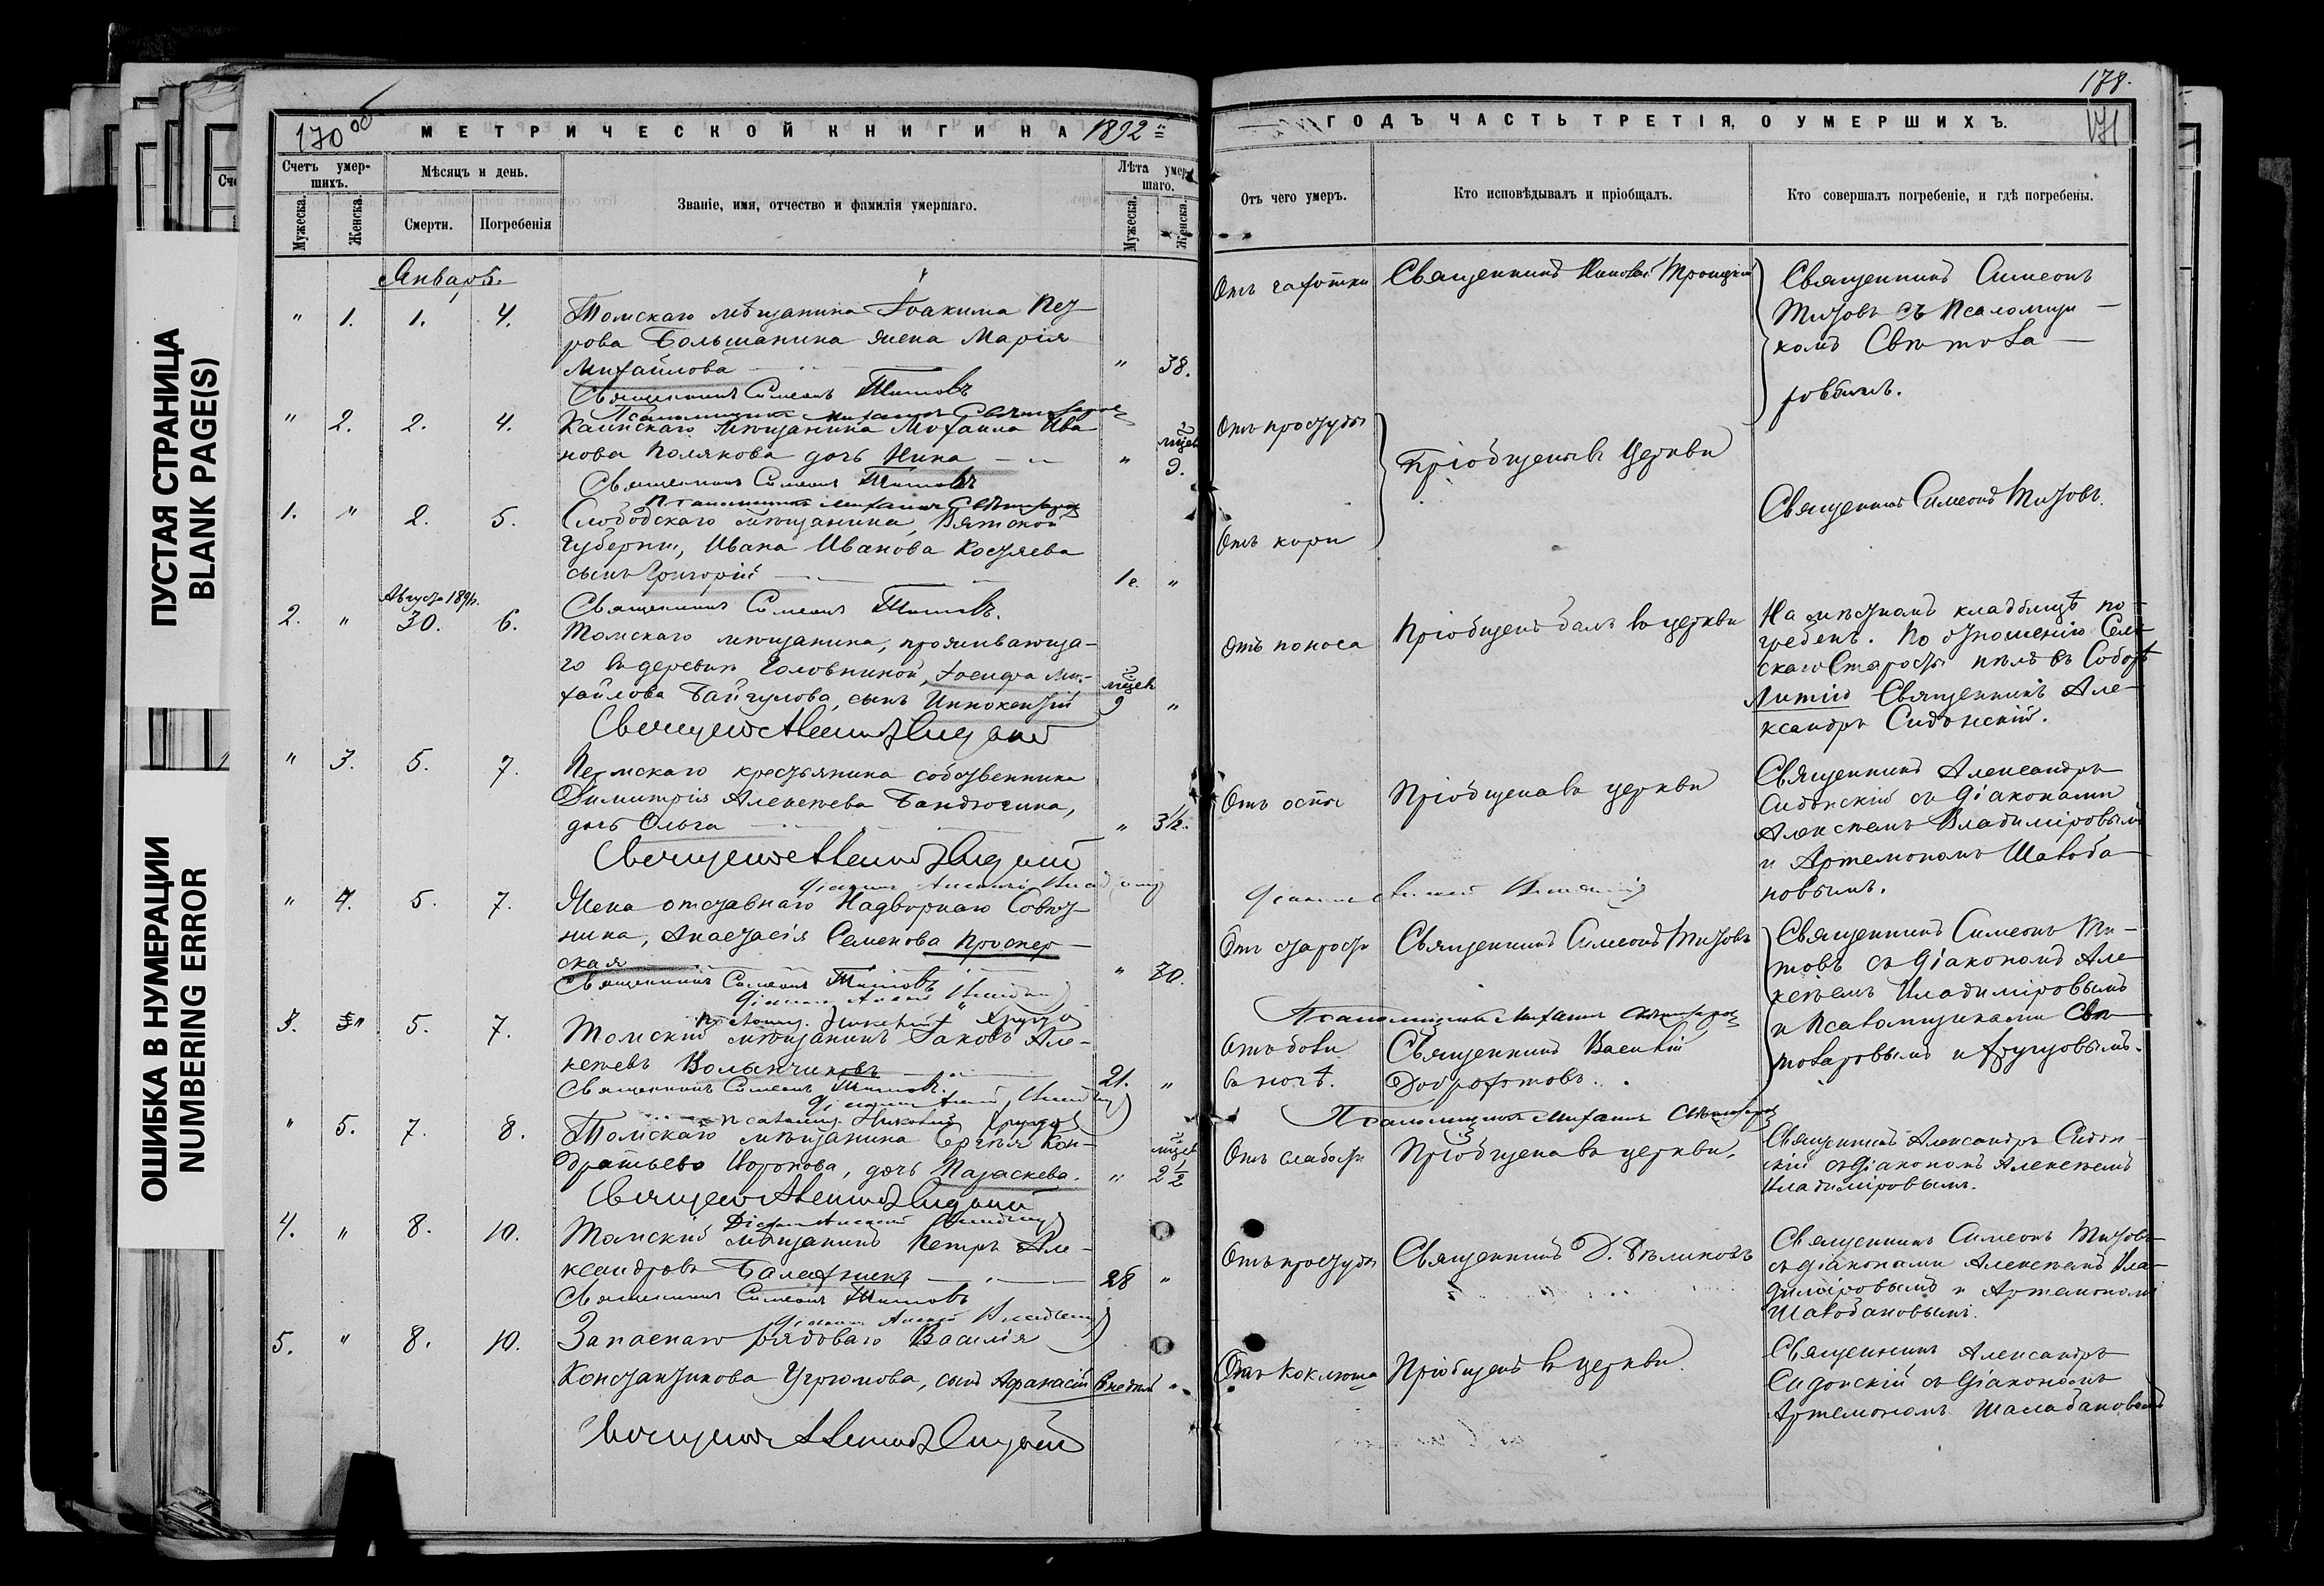 ПУСТАЯ СТРАНИЦА
BLANK PAGE(S)
ОШИБКА В НУМЕРАЦИИ
NUMBERING ERROR
170 об
МЕТРИЧЕСКОЙ КНИГИ НА 1892
Счетъ умер-
шихъ.
Мѣсяцъ и день.
Званіе, имя, отчество и фамилія умершаго.
Лѣта умер-
шаго.
Мужеска.
Женска.
Смерти.
Погребенія
Мужеска.
Женска.
Январь.
" 1. 1. 4. Томскаго мѣщанина Іоакима Пет-
рова Большанина жена Марія
Михайлова " 38.
Священникъ Симеонъ Титовъ
Псаломщикъ Михаилъ
" 2. 2. 4. Каинскаго мѣщанина Михаила Ива
нова Полякова дочь Нина " мѣсяц. 9.
Священникъ Симеонъ Титовъ
Псаломщикъ Михаилъ
1. " 2. 5. Слободскаго мѣщанина, Вятской
губерніи, Ивана Иванова
сынъ Григорій 1 г. "
Священникъ Симеонъ Титовъ.
Августа 1891 г.
2. " 30. 6. Томскаго мѣщанина, проживающа-
го въ деревнѣ Головниной, Іосифа Ми-
хайлова Байгулова, сынъ Иннокентій мѣсяц. 9 "
" 3. 5. 7. Пермскаго крестьянина собственника
Димитрія Алексѣева Бандюгина,
дочь Ольга " 3½.
" 4. 5. 7. Жена отставнаго Надворнаго Совѣт-
ника, Анастасія Семенова Проспер-
ская " 70.
Священникъ Симеонъ Титовъ
3. " 5. 7. Томскій мѣщанинъ Іаковъ Але-
ксѣевъ Волынчиковъ 21. "
Священникъ Симеонъ Титовъ.
" 5. 7. 8. Томскаго мѣщанина Сергѣя Кон-
дратьева Воронова, дочь Параскева. " мѣсяц. 2½
4. " 8. 10. Томскій мѣщанинъ Петръ Але-
ксандровъ 28 "
Священникъ Симеонъ Титовъ
5. " 8. 10. Запаснаго рядоваго Василія
Константинова Угрюмова, сынъ Афанасій 6 недѣль "
178.
171
ГОДЪ ЧАСТЬ ТРЕТІЯ, О УМЕРШИХЪ.
Отъ чего умеръ.
Кто исповѣдывалъ и пріобщалъ.
Кто совершалъ погребеніе, и гдѣ погребены.
Отъ чахотки
Священникъ Николай Троицкій
Священникъ Симеонъ
Титовъ съ Псаломщи-
комъ Святоза-
ровымъ.
Отъ простуды
Пріобщены въ Церкви
Священникъ Симеонъ Титовъ.
Отъ кори
Отъ поноса
Пріобщенъ былъ въ церкви
На мѣстномъ кладбищѣ по-
гребенъ. По отношенію Сель-
скаго Старосты пѣлъ въ Соборѣ
Литію Священникъ Але-
ксандръ Сидонскій.
Отъ оспы
Пріобщена въ церкви
Священникъ Александръ
Сидонскій съ Діаконами
Алексѣемъ Владиміровымъ
и Артемономъ Шалаба-
новымъ.
Отъ старости
Священникъ Симеонъ Титовъ
Священникъ Симеонъ Ти-
товъ съ Діакономъ Але-
ксѣемъ Владиміровымъ
и Псаломщиками Свя-
тозаровымъ и
Отъ боли
въ ногѣ.
Священникъ Василій
Доброхотовъ.
Отъ слабости
Пріобщена въ церкви.
Священникъ Александръ Сидон-
скій съ Діакономъ Алексѣемъ
Владиміровымъ.
Отъ простуды
Священникъ Д. Бѣликовъ
Священникъ Симеонъ Титовъ
съ діаконами Алексѣемъ Вла-
диміровымъ и Артемономъ
Шалабановымъ.
Отъ коклюша
Пріобщенъ въ церкви.
Священникъ Александръ
Сидонскій съ Діакономъ
Артемономъ Шалабановымъ